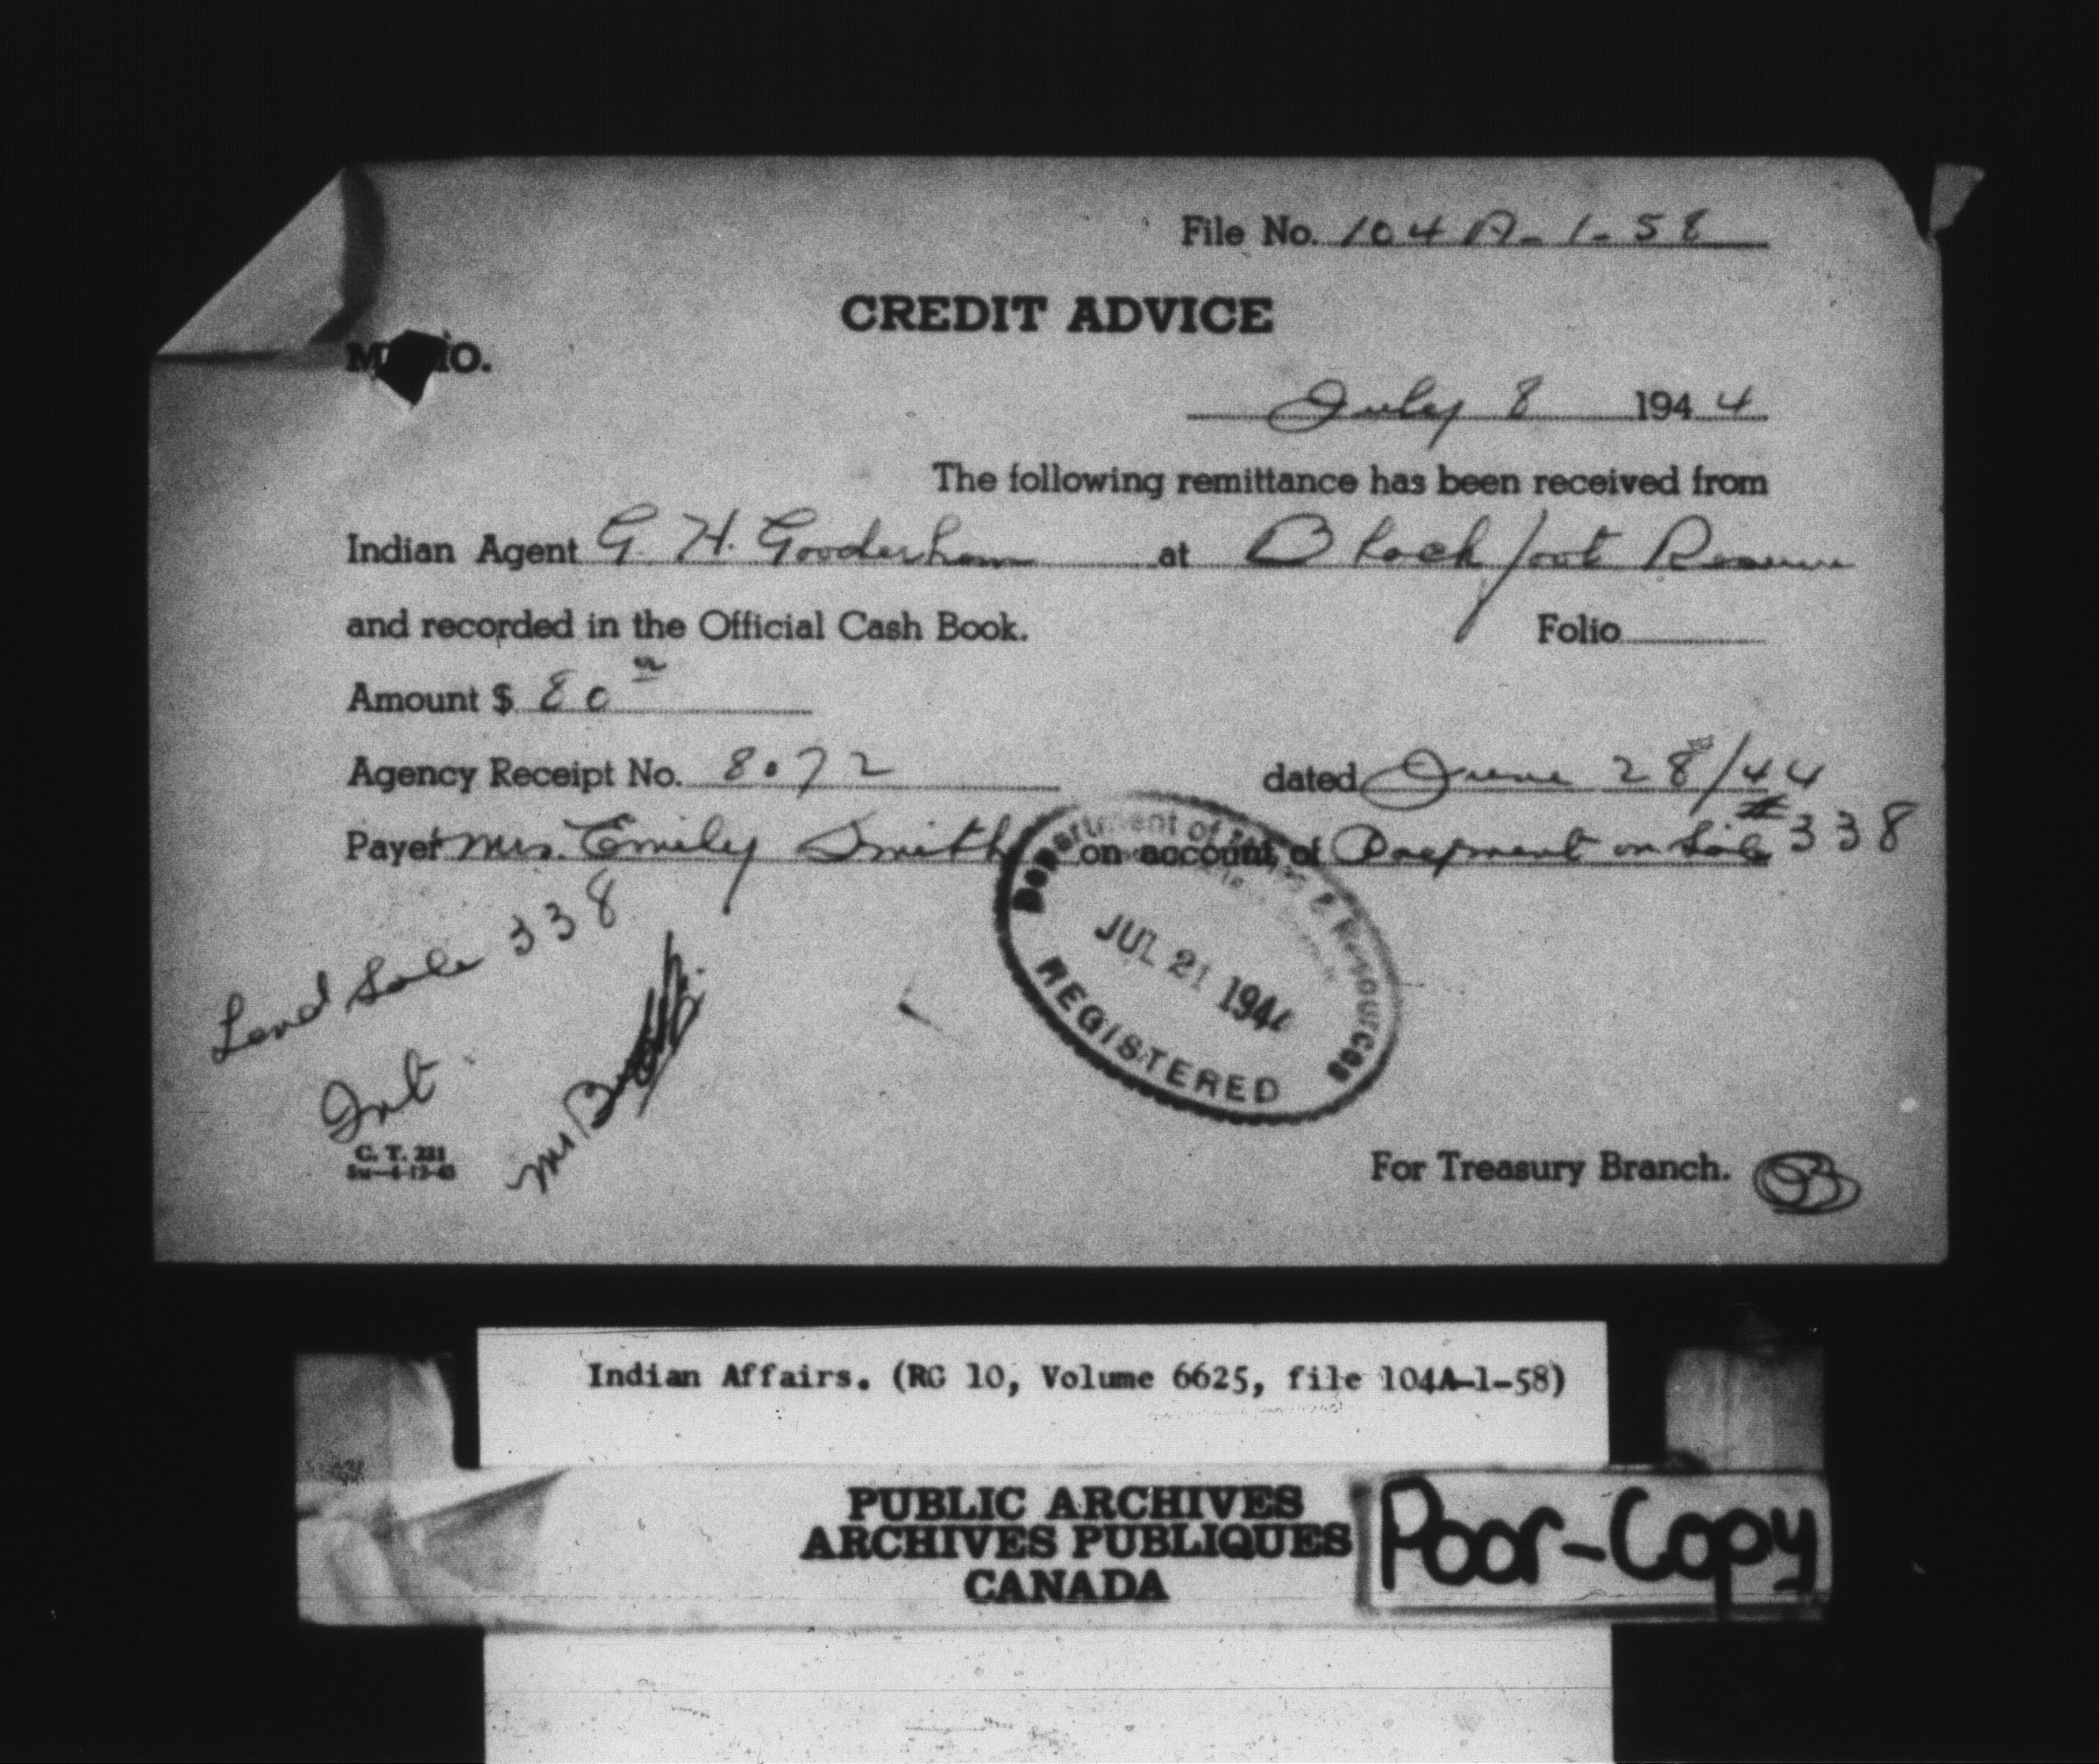 File No. 104 A-1-58
CREDIT ADVICE
M O.
July 8 1944
The following remittance has been received from
Indian Agent G. H. Gooderham at Blackfoot Reserve
and recorded in the Official Cash Book. Folio
Amount $ 80
Agency Receipt No. 8072 dated June 28/44
Payer Mrs. Emily Smith on account of Payment on Sale #338
Department of Mines & Resources
JUL 21 1944
REGISTERED
Land Sale 338
Int.
Mr
C. T. 231
5M-4-13-43
For Treasury Branch.
Indian Affairs. (RG 10, Volume 6625, file 104A-1-58)
PUBLIC ARCHIVES
ARCHIVES PUBLIQUES
CANADA
Poor-Copy